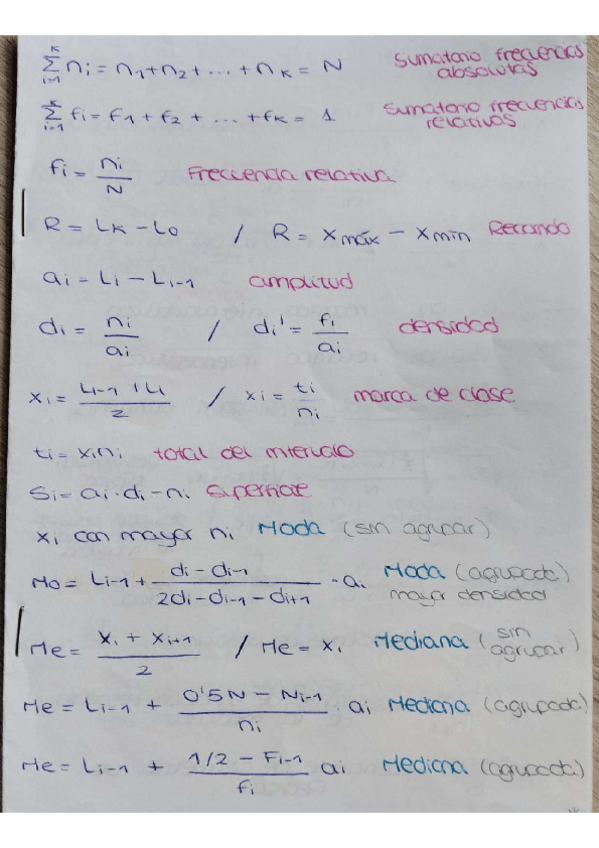 $\sum_{i=1}^{K} n_i = n_1 + n_2 + \ldots + n_K = N$ Sumatorio frecuencias absolutas
$\sum_{i=1}^{K} f_i = f_1 + f_2 + \ldots + f_K = 1$ Sumatorio frecuencias relativas
$f_i = \frac{n_i}{N}$ Frecuencia relativa
$R = L_K - L_0$ / $R = x_{máx} - x_{mín}$ Recorrido
$a_i = L_i - L_{i-1}$ amplitud
$d_i = \frac{n_i}{a_i}$ / $d_i' = \frac{f_i}{a_i}$ densidad
$x_i = \frac{L_{i-1} + L_i}{2}$ / $x_i = \frac{t_i}{n_i}$ marca de clase
$t_i = x_i n_i$ total del intervalo
$S_i = a_i \cdot d_i - n_i$ Superficie
$x_i$ con mayor $n_i$ Moda (sin agrupar)
$Mo = L_{i-1} + \frac{d_i - d_{i-1}}{2d_i - d_{i-1} - d_{i+1}} \cdot a_i$ Moda (agrupada) mayor densidad
$Me = \frac{x_i + x_{i+1}}{2}$ / $Me = x_i$ Mediana (sin agrupar)
$Me = L_{i-1} + \frac{0'5N - N_{i-1}}{n_i} \cdot a_i$ Mediana (agrupada)
$Me = L_{i-1} + \frac{1/2 - F_{i-1}}{f_i} a_i$ Mediana (agrupada)